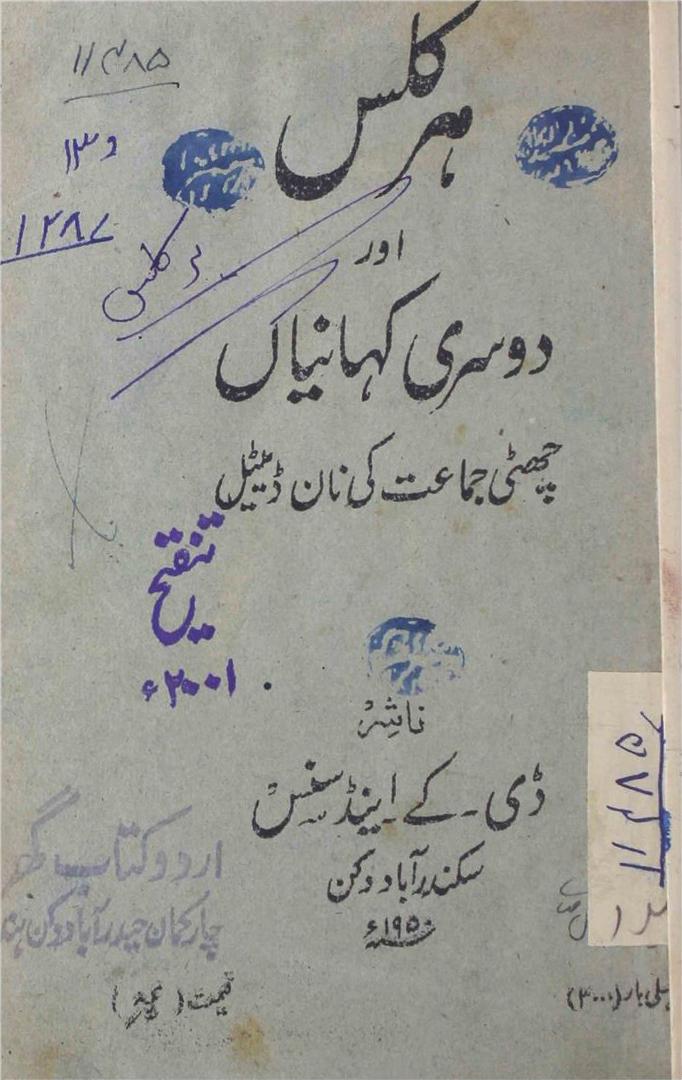 ۱۱۴۸۵
ہرکلس
۱۳ د
۱۲۸۷
اور
ہرکلس
دوسری کہانیاں
چھٹی جماعت کی نان ڈیٹیل
تنقیح
۲۰۰۱ء
ناشر
ڈی۔ کے۔ اینڈ سنس
سکندرآباد دکن
۱۹۵۰ء
اردو کتاب گھر
چارکمان حیدرآباد دکن
۱۱۴۸۵
قیمت (
پہلی بار (۳۰۰۰)